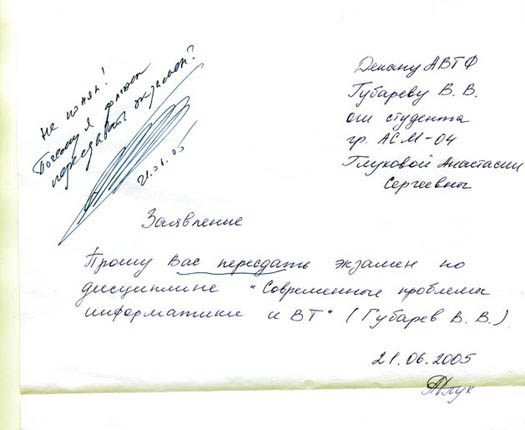 Не понял!
Почему я должен
пересдавать экзамен?
21.06.05
Декану АВТФ
Губареву В. В.
от студента
гр. АСМ-04
Глуховой Анастасии
Сергеевны
Заявление
Прошу Вас пересдать экзамен по
дисциплине "Современные проблемы
информатики и ВТ" (Губарев В. В.)
21.06.2005
АГлух